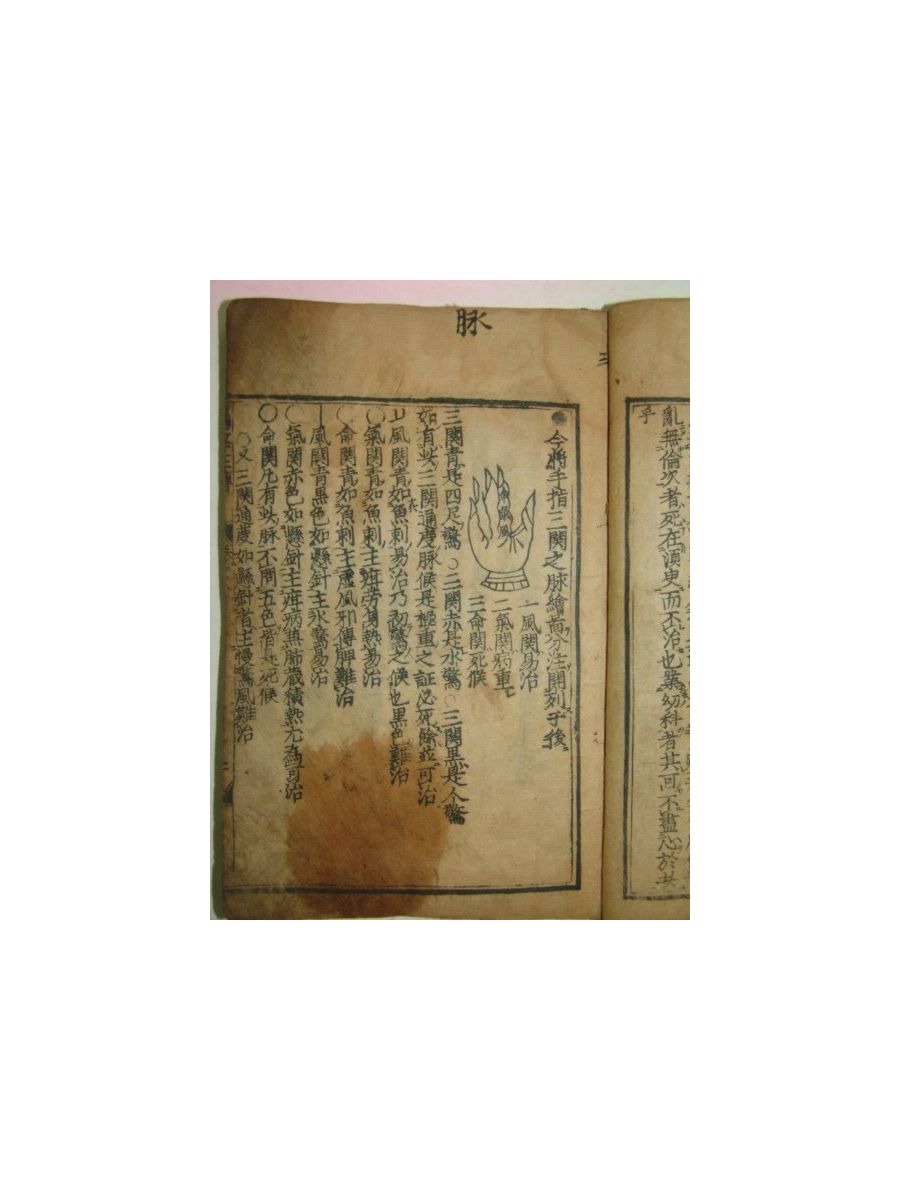 乎
亂無倫次者死在須臾而不治也業幼科者其可不盡心於共
脉
三
今將手指三関之脉繪啚分注開列于後
命氣風
一風関易治
二氣関病重
三命関死候
三関青是四足驚○三関赤是水驚○三関黒是人驚
如有此三関通度脉候是極重之証必死餘並可治
風関青如魚刺易治乃初驚之候也黒色難治
○氣関青如魚刺主疳劳身熱易治
○命関青如魚刺主虚風邪傳脾難治
風関青黒色如懸針主水驚易治
○氣関赤色如懸針主疳病兼肺歳積熱尤為可治
○命関凡有此脉不問五色皆是死候
○又三関通度如懸針者主慢驚風難治